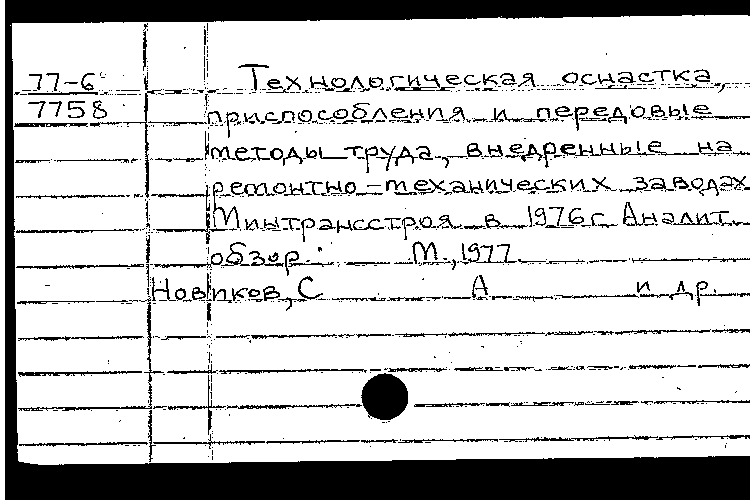 77-6
7758
Технологическая оснастка,
приспособления и передовые
методы труда, внедренные на
ремонтно-механических заводах
Минтрансстроя в 1976г Аналит.
обзор. М., 1977.
Новиков, С А и др.